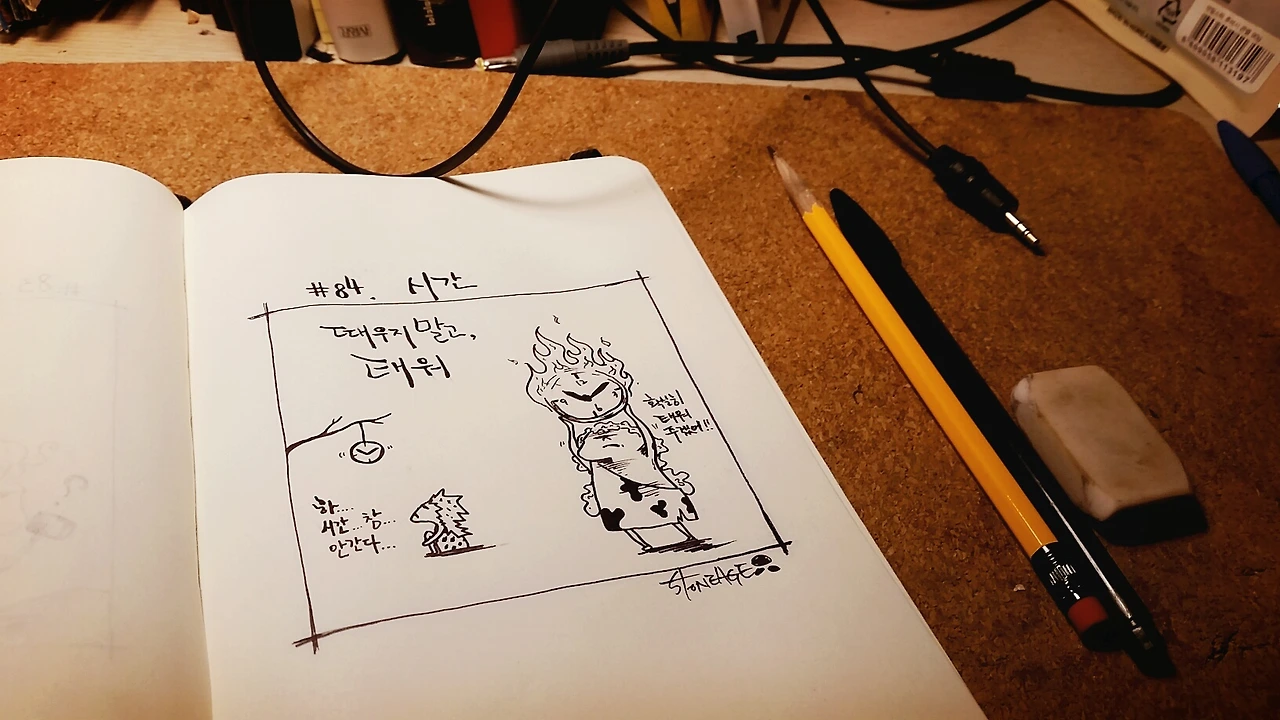 #84. 시간
때우지 말고,
태워
확실히
태워
주겠어!!
하...
시간...참...
안간다...
STONEAGE